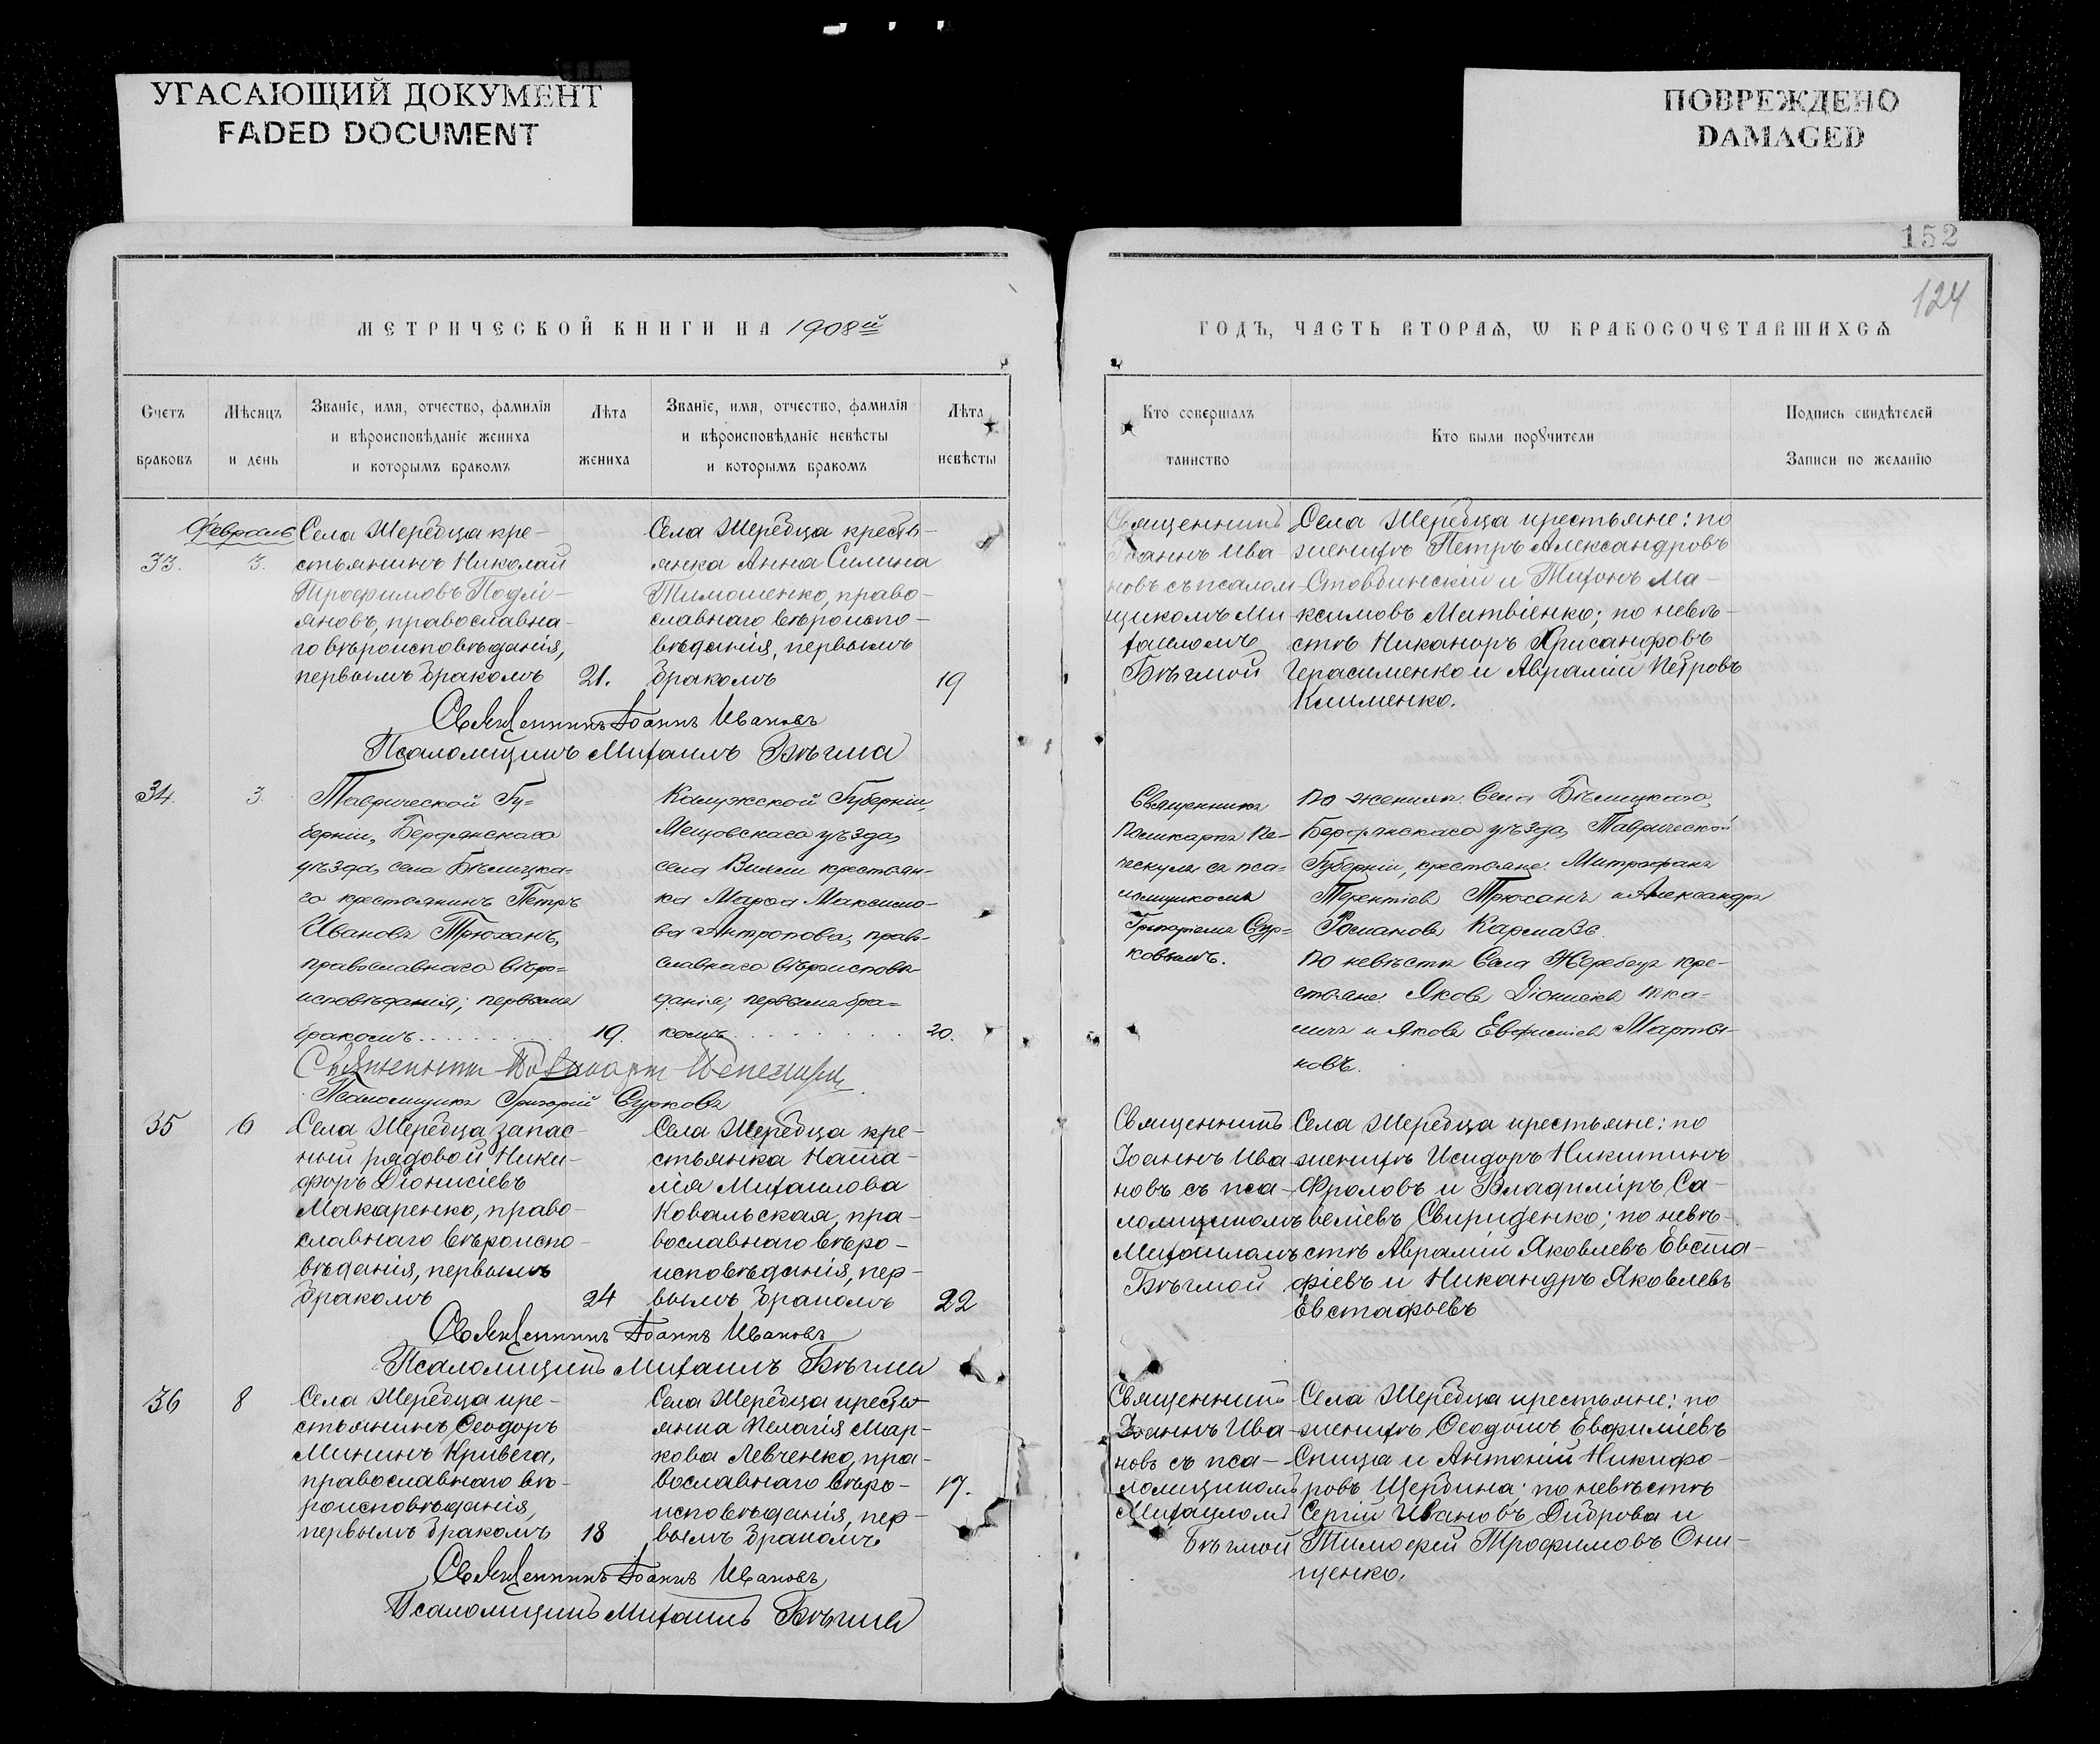 УГАСАЮЩИЙ ДОКУМЕНТ
FADED DOCUMENT
ПОВРЕЖДЕНО
DAMAGED
152
124
МЕТРИЧЕСКОЙ КНИГИ НА 1908й
ГОДЪ, ЧАСТЬ ВТОРАЯ, Ѡ БРАКОСОЧЕТАВШИХСЯ
Счетъ
браковъ
Мѣсяцъ
и день
Званіе, имя, отчество, фамилія
и вѣроисповѣданіе жениха
и которымъ бракомъ
Лѣта
жениха
Званіе, имя, отчество, фамилія
и вѣроисповѣданіе невѣсты
и которымъ бракомъ
Лѣта
невѣсты
Кто совершалъ
таинство
Кто были порꙋчители
Подпись свидѣтелей
Записи по желанію
Февраль
33.
3.
Села Жеребца кре-
стьянинъ Николай
Трофимовъ Подлі-
яновъ, православна-
го вѣроисповѣданія,
первымъ бракомъ
21.
Села Жеребца кресть-
янка Анна Силина
Тимошенко, право-
славнаго вѣроиспо-
вѣданія, первымъ
бракомъ
19
Священникъ
Іоаннъ Ива-
новъ съ псалом-
щикомъ Ми-
хаиломъ
Бѣгмой
Села Жеребца крестьяне: по
женихѣ Петръ Александровъ
Стовбинскій и Тихонъ Ма-
ксимовъ Матвіенко; по невѣ-
стѣ Никаноръ Хрисанфовъ
Герасименко и Аврамій Петровъ
Клименко.
Священникъ Іоаннъ Ивановъ
Псаломщикъ Михаилъ Бѣгма
34.
3.
Таврической Гу-
берніи, Бердянскаго
уѣзда, села Бѣлицка-
го крестьянинъ Петръ
Ивановъ Трюханъ,
православнаго вѣро-
исповѣданія; первымъ
бракомъ
19.
Калужской Губерніи,
Мещовскаго уѣзда,
села крестьян-
ка Марѳа Максимо-
ва Антропова, право-
славнаго вѣроисповѣ-
данія; первымъ бра-
комъ
20.
Священникъ
Поликарпъ
съ пса-
ломщикомъ
Григоріемъ Сур-
ковымъ.
По женихѣ: Села Бѣлицкаго,
Бердянскаго уѣзда, Таврической
Губерніи, крестьяне: Митрофанъ
Терентіевъ Трюханъ и Александръ
Романовъ Кармазь.
По невѣстѣ Села Жеребца кре-
стьяне: Яковъ Діонисіевъ Тка-
личъ и Яковъ Евфиміевъ Марты-
новъ.
Священникъ Поликарпъ
Псаломщикъ Григорій Сурковъ
35
6
Села Жеребца запас-
ный рядовой Ники-
форъ Діонисіевъ
Макаренко, право-
славнаго вѣроиспо-
вѣданія, первымъ
бракомъ
24
Села Жеребца кре-
стьянка Ната-
лія Михаилова
Ковальская, пра-
вославнаго вѣро-
исповѣданія, пер-
вымъ бракомъ
22
Священникъ
Іоаннъ Ива-
новъ съ пса-
ломщикомъ
Михаиломъ
Бѣгмой
Села Жеребца крестьяне: по
женихѣ Исидоръ Никитинъ
Фроловъ и Владиміръ Са-
веліевъ Свириденко; по невѣ-
стѣ Аврамій Яковлевъ Евста-
фіевъ и Никандръ Яковлевъ
Евстафьевъ
Священникъ Іоаннъ Ивановъ
Псаломщикъ Михаилъ Бѣгма
36
8
Села Жеребца кре-
стьянинъ Ѳеодоръ
Мининъ Кривега,
православнаго вѣ-
роисповѣданія,
первымъ бракомъ
18
Села Жеребца кресть
янка Пелагія Мар-
кова Левченко, пра-
вославнаго вѣро-
исповѣданія, пер-
вымъ бракомъ
17.
Священникъ
Іоаннъ Ива-
новъ съ пса-
ломщикомъ
Михаиломъ
Бѣгмой
Села Жеребца крестьяне: по
женихѣ Ѳеодотъ Евфиміевъ
Спица и Антоній Никифо-
ровъ Щербина; по невѣстѣ
Сергій Ивановъ Диброва и
Тимоѳей Трофимовъ Они-
щенко.
Священникъ Іоаннъ Ивановъ
Псаломщикъ Михаилъ Бѣгма